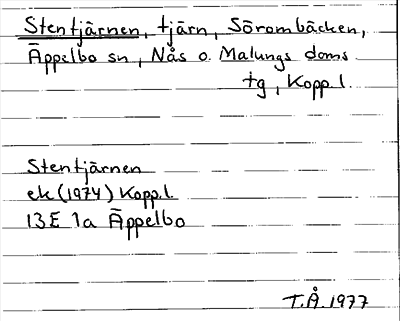 Stentjärnen, tjärn, Sörombäcken,
Äppelbo sn, Nås o. Malungs doms
tg, Kopp.l.
Stentjärnen
ek (1974) Kopp.l.
13E 1a Äppelbo
T.Å. 1977